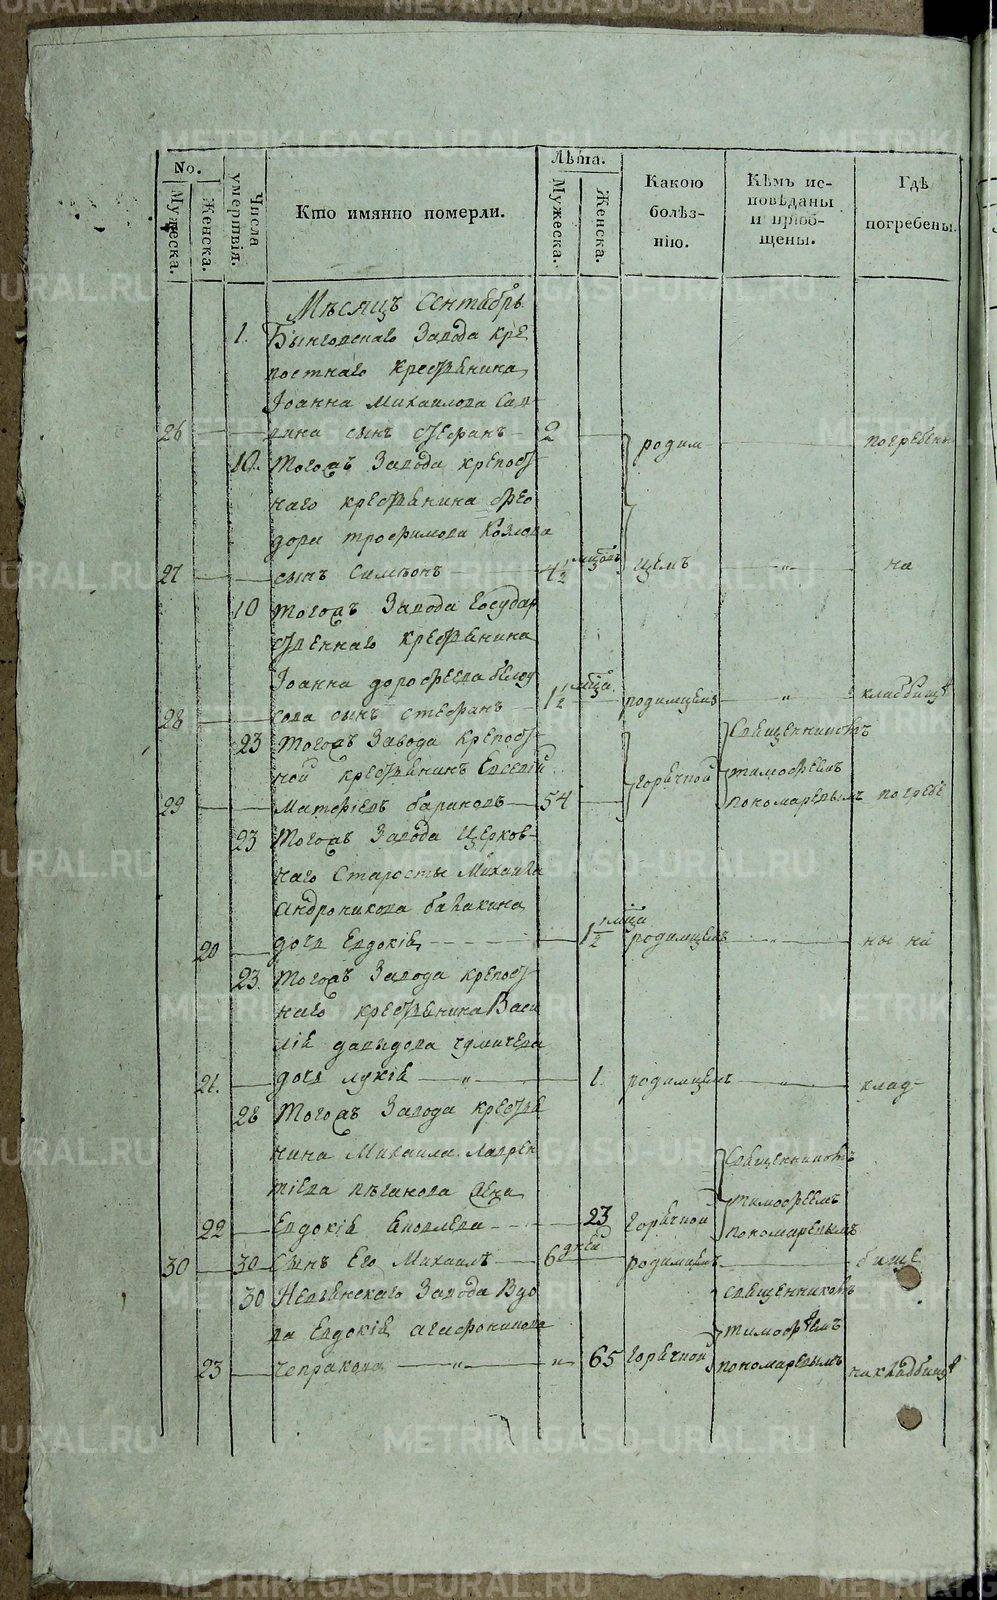 No.
Мужеска.
Женска.
Числа умертвія.
Кто имянно померли.
Лѣта.
Мужеска.
Женска.
Какою болѣз-
нію.
Кѣмъ ис-
повѣданы
и пріоб-
щены.
Гдѣ
погребены.
Мѣсяцъ Сентябрь
1. Быньговскаго Завода кре
постнаго крестьянина
Іоанна Михаилова
26 сынъ Стефанъ 2 родим погребены
10. Тогожъ Завода крепост
наго крестьянина Фео
дора Трофимова Козлова
27 сынъ Симеонъ 4 1/2 мцовъ цемъ „ на
10 Тогожъ Завода Государ
ственнаго крестьянина
Іоанна Дорофеева Белоу
28 сова сынъ Стефанъ 1 1/2 мца родимцемъ „ кладбищѣ
23 Тогожъ Завода крепост
ной крестьянинъ Евсевій
29 Матфіевъ Бариновъ 54 горячкой Священникомъ
Тимофеемъ
Пономаревымъ погребе
23 Тогожъ Завода Церков-
наго Старосты Михаила
Андроникова Бабакина
20 дочь Евдокія 1 1/2 мца родимцемъ „ ны на
23. Тогожъ Завода крепост
наго крестьянина Васи
лія Давыдова Чумичева
21. дочь Лукія „ 1. родимцемъ „ клад-
28 Тогожъ Завода крестья
нина Михаила Лаврен
тіева Пѣганова жена
22 Евдокія Яковлева 23 горячкой Священникомъ
Тимофеемъ
Пономаревымъ
30 30 Сынъ Его Михаилъ 6 дней родимцемъ бище
30 Невьянскаго Завода Вдо
ва Евдокія Агафонникова
23 Чепракова „ „ 65 горячкой Священникомъ
Тимофѣемъ
Пономаревымъ на кладбищѣ
METRIKI.GASO-URAL.RU